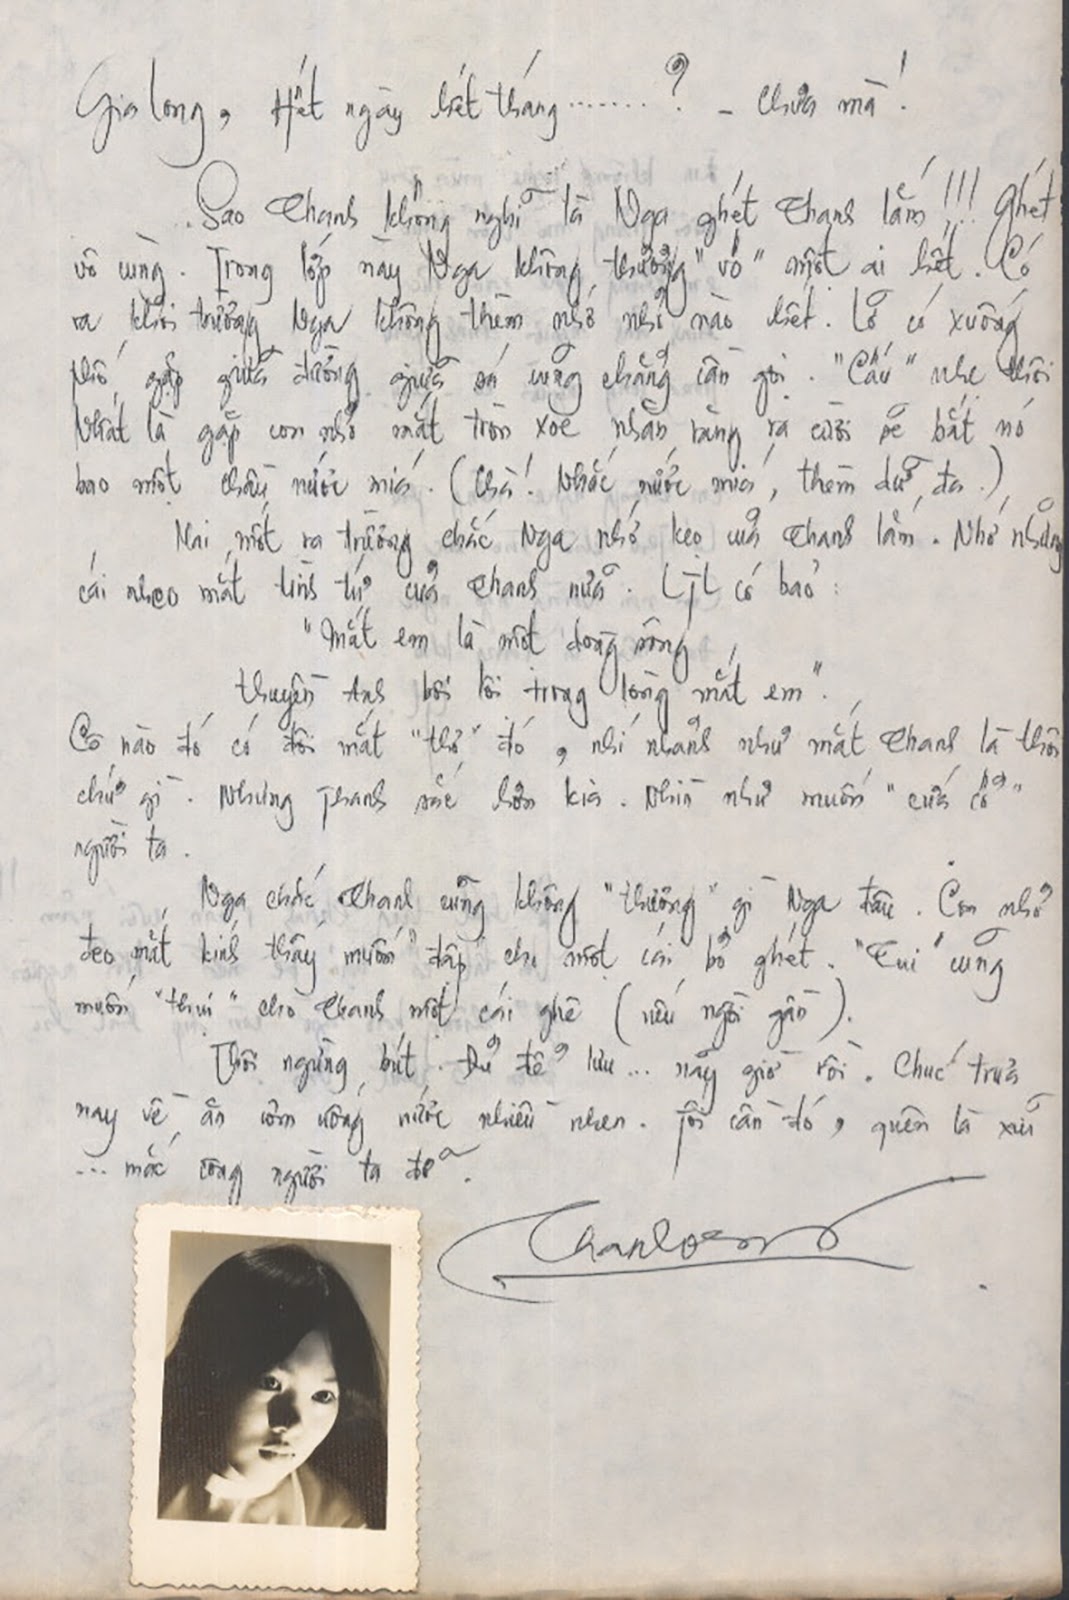 Gia long, Hết ngày hết tháng.......? - Chưa mà!
Sao Thanh không nghĩ là Nga ghét Thanh lắm!!! Ghét
vô cùng. Trong lớp này Nga không thương "vô" một ai hết. Có
ra khỏi trường Nga không thèm nhớ nhỏ nào hết. Lỡ có xuống
phố gặp giữa đường giữa xá cũng chẳng cần gọi. "Cấu" nhẹ thôi
Nhất là gặp con nhỏ mắt tròn xoe nhăn răng ra cười sẽ bắt nó
bao một chầu nước mía. (Chà! Nhắc nước mía, thèm dữ đa.)
Mai mốt ra trường chắc Nga nhớ kẹo của Thanh lắm. Nhớ những
cái nheo mắt tình tứ của Thanh nữa. có bảo:
"Mắt em là một dòng sông
Thuyền Anh bơi lội trong lòng mắt em".
Cô nào đó có đôi mắt "thơ" đó, nhí nhảnh như mắt Thanh là thôi
chứ gì. Nhưng Thanh sắc hơn kìa. Nhìn như muốn "cứa cổ"
người ta.
Nga chắc Thanh cũng không "thương" gì Nga đâu. Con nhỏ
đeo mắt kính thấy muốn "đập" cho một cái bỏ ghét. "Tui" cũng
muốn "thúi" cho Thanh một cái ghê (nếu ngồi gần).
Thôi ngừng bút. Đủ để lưu... mấy giờ rồi. Chúc trưa
nay về ăn cơm uống nước nhiều nhen. Tới cần đó, quên là xỉu
... mắc công người ta đỡ.